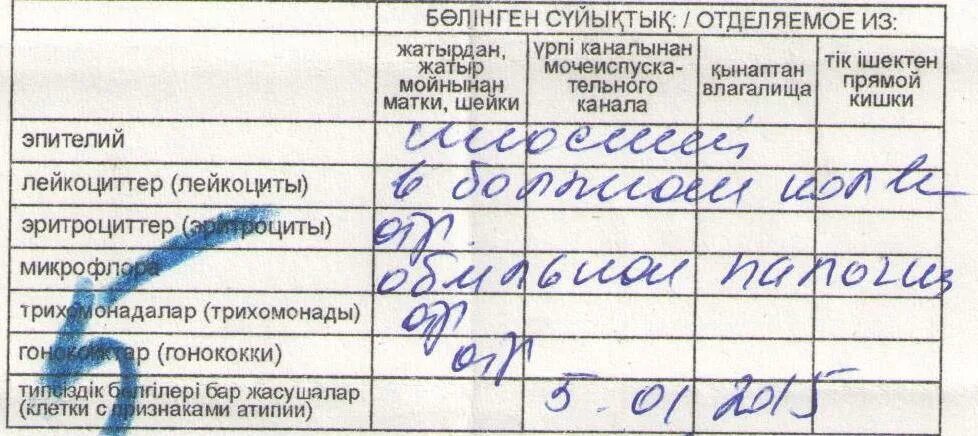 БӨЛІНГЕН СҰЙЫҚТЫҚ: / ОТДЕЛЯЕМОЕ ИЗ:
жатырдан, жатыр мойнынан матки, шейки
үрпі каналынан мочеиспуска- тельного канала
қынаптан влагалища
тік ішектен прямой кишки
эпителий плоский
лейкоциттер (лейкоциты) в большом кол-ве
эритроциттер (эритроциты) отр.
микрофлора обильная палочки
трихомонадалар (трихомонады) отр
гонококктар (гонококки) отр
типсіздік белгілері бар жасушалар
(клетки с признаками атипии) 5.01 2015